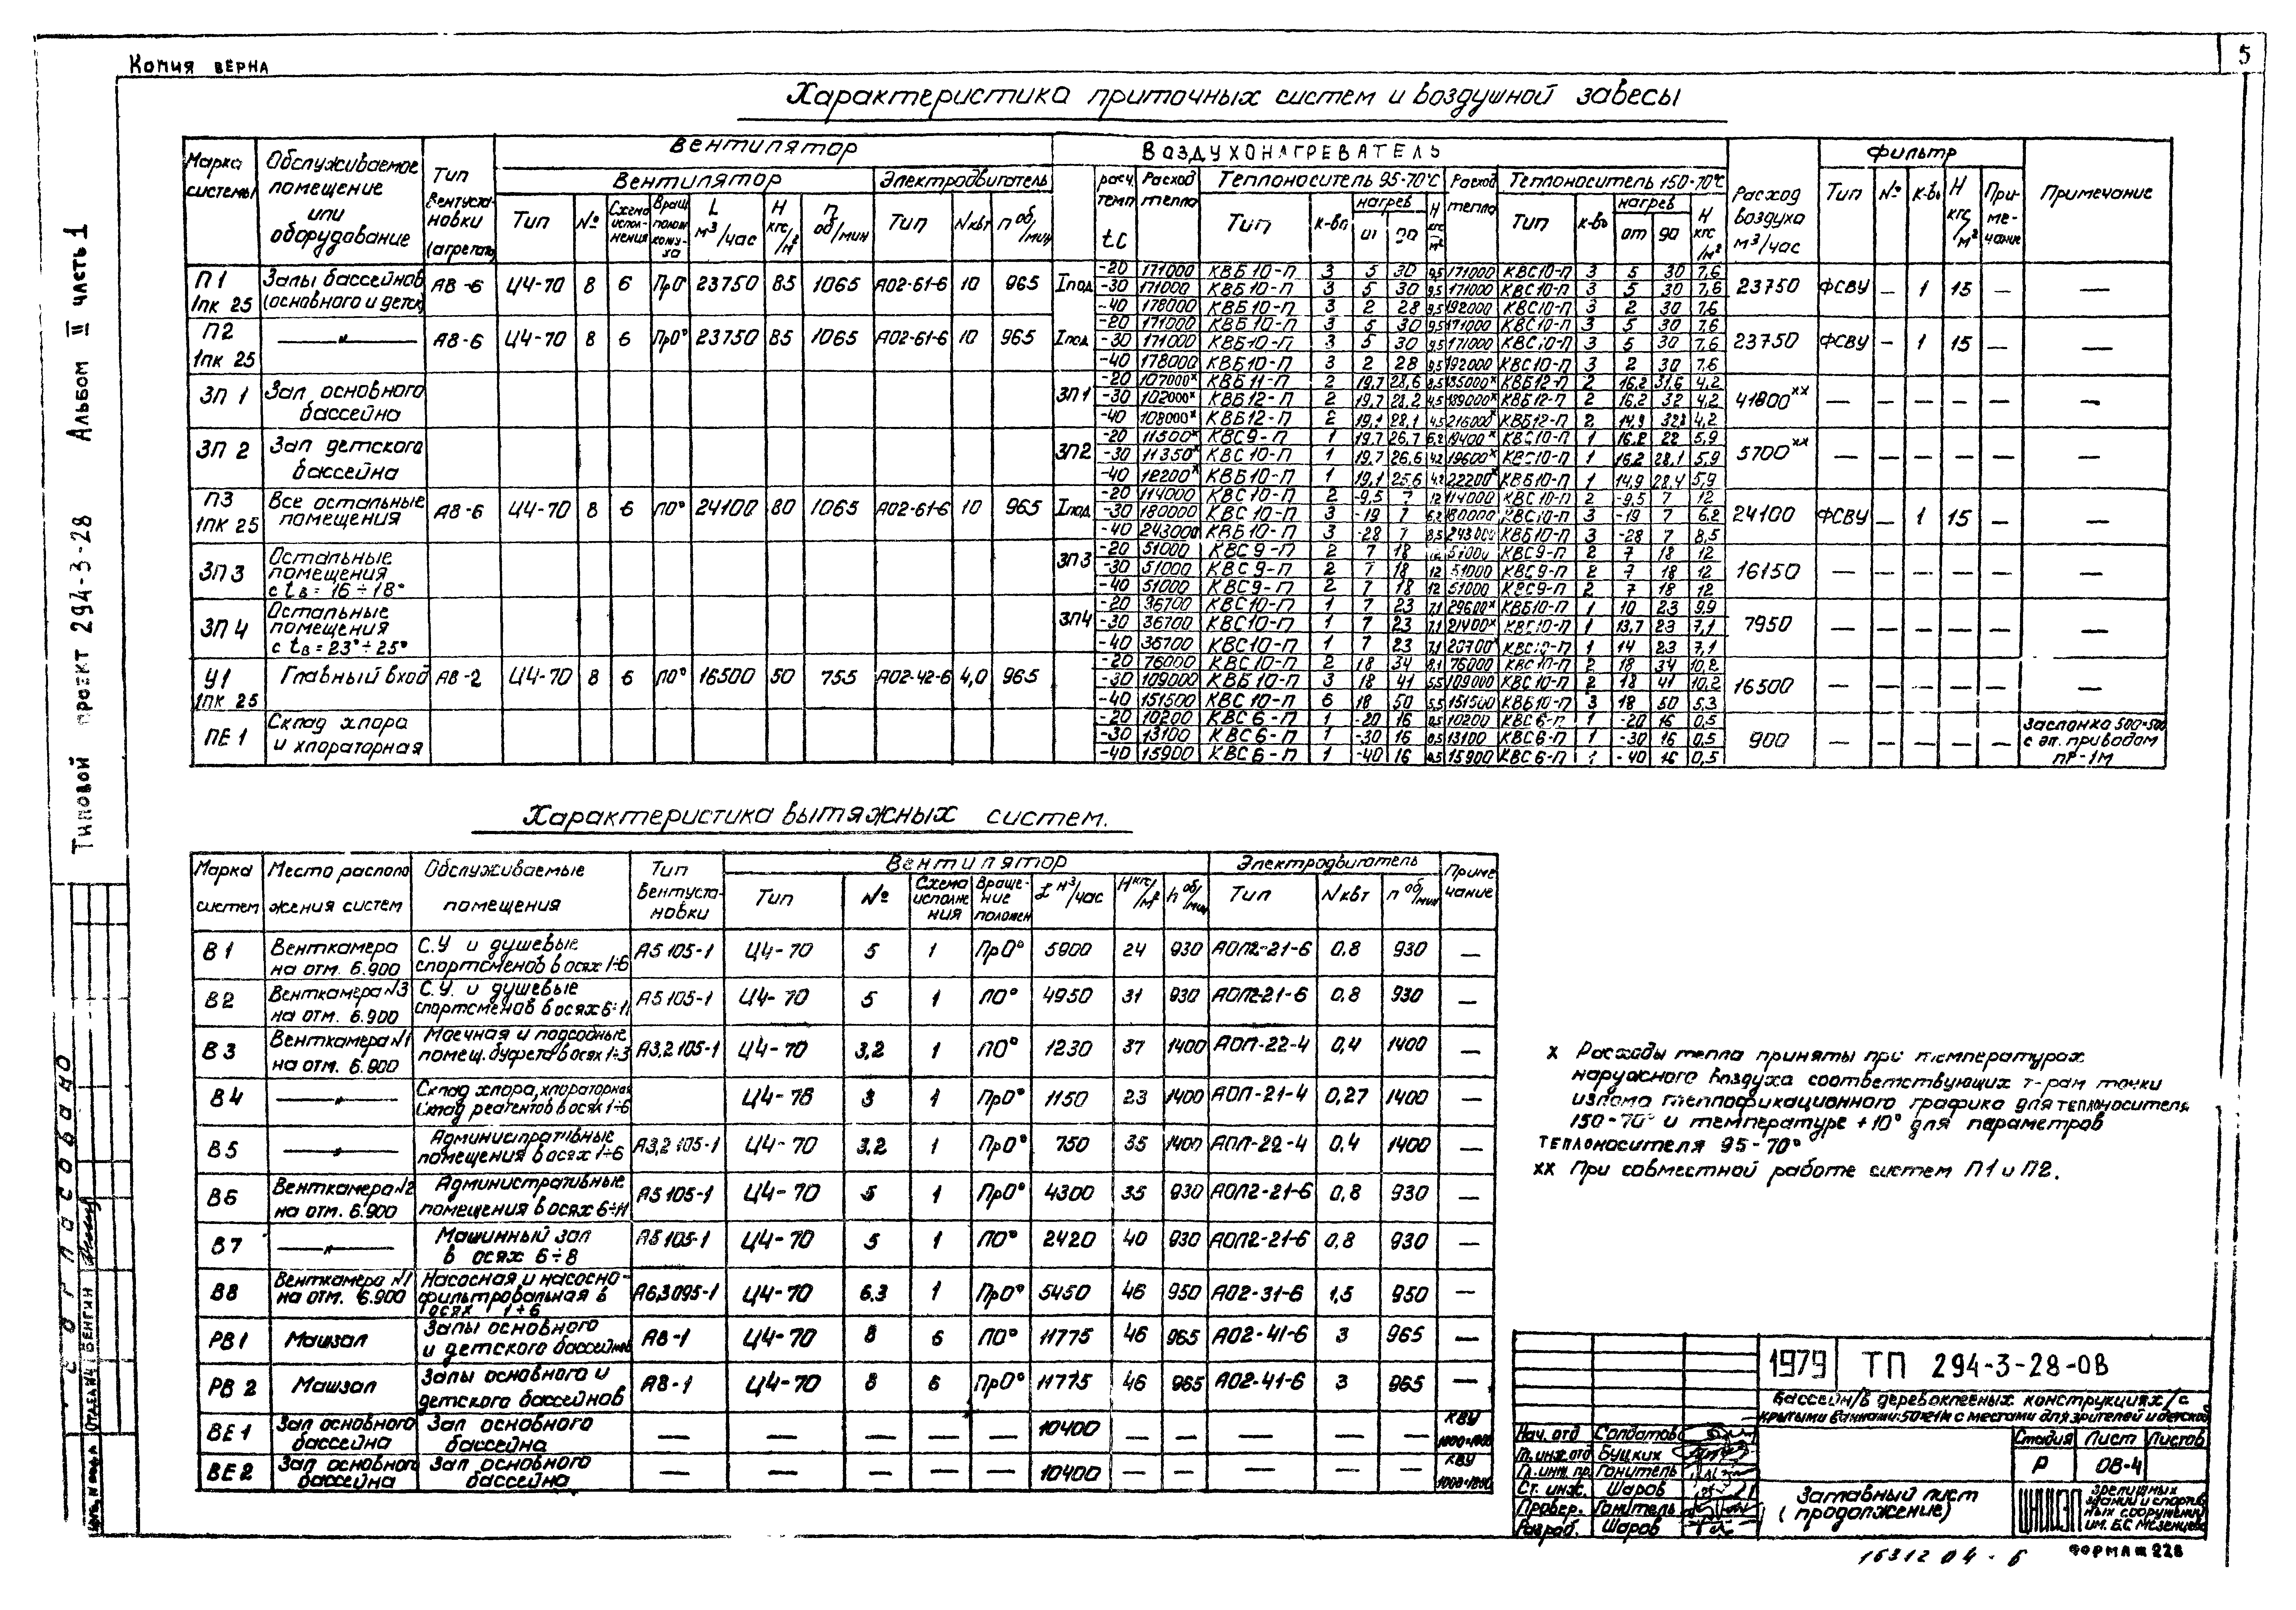 Копия верна
5
Характеристика приточных систем и воздушной завесы
Марка системы | Обслуживаемое помещение или оборудование | Тип вентустановки (агрегата) | Вентилятор | Воздухонагреватель | Расход воздуха м³/час | Фильтр | Примечание
Вентилятор | Электродвигатель | расч. темп tС | Расход тепла | Теплоноситель 95-70°С | Расход тепла | Теплоноситель 150-70°С | Тип | № | к-во | Н кгс/м² | Примечание
Тип | № | Схема исполнения | Вращ. полож. кожуха | L м³/час | Н кгс/м² | п об/мин | Тип | Nквт | п об/мин | Тип | к-во | нагрев от до | Н кгс/м² | Тип | к-во | нагрев от до | Н кгс/м²
П1 1пк 25 | Залы бассейнов (основного и детск) | А8-6 | Ц4-70 | 8 | 6 | Пр0° | 23750 | 85 | 1065 | А02-61-6 | 10 | 965 | Iпод | 23750 | ФСВУ | — | 1 | 15 | — | —
-20 | 171000 | КВБ10-П | 3 | 5 | 30 | 9,5 | 171000 | КВС10-П | 3 | 5 | 30 | 7,6
-30 | 171000 | КВБ10-П | 3 | 5 | 30 | 9,5 | 171000 | КВС10-П | 3 | 5 | 30 | 7,6
-40 | 178000 | КВБ10-П | 3 | 2 | 28 | 9,5 | 192000 | КВС10-П | 3 | 2 | 30 | 7,6
П2 1пк 25 | —"— | А8-6 | Ц4-70 | 8 | 6 | Пр0° | 23750 | 85 | 1065 | А02-61-6 | 10 | 965 | Iпод | 23750 | ФСВУ | — | 1 | 15 | — | —
-20 | 171000 | КВБ10-П | 3 | 5 | 30 | 9,5 | 171000 | КВС10-П | 3 | 5 | 30 | 7,6
-30 | 171000 | КВБ10-П | 3 | 5 | 30 | 9,5 | 171000 | КВС10-П | 3 | 5 | 30 | 7,6
-40 | 178000 | КВБ10-П | 3 | 2 | 28 | 9,5 | 192000 | КВС10-П | 3 | 2 | 30 | 7,6
ЗП 1 | Зал основного бассейна | ЗП1 | 41800ˣˣ | — | — | — | — | — | —
-20 | 107000ˣ | КВБ11-П | 2 | 19,7 | 28,6 | 8,5 | КВБ12-П | 2 | 16,2 | 31,6 | 4,2
-30 | 102000ˣ | КВБ12-П | 2 | 19,7 | 28,2 | 4,5 | 189000ˣ | КВБ12-П | 2 | 16,2 | 32 | 4,2
-40 | 108000ˣ | КВБ12-П | 2 | 19,1 | 28,1 | 4,5 | 216000ˣ | КВБ12-П | 2 | 14,9 | 4,2
ЗП 2 | Зал детского бассейна | ЗП2 | 5700ˣˣ | — | — | — | — | — | —
-20 | 11500ˣ | КВС9-П | 1 | 19,7 | 26,7 | 6,2 | 19400ˣ | КВС10-П | 1 | 16,2 | 22 | 5,9
-30 | 11350ˣ | КВС10-П | 1 | 19,7 | 26,6 | 4,2 | 19600ˣ | КВС10-П | 1 | 16,2 | 28,1 | 5,9
-40 | 12200ˣ | КВБ10-П | 1 | 19,1 | 25,6 | 4,2 | 22200ˣ | КВБ10-П | 1 | 14,9 | 28,4 | 5,9
П3 1пк 25 | Все остальные помещения | А8-6 | Ц4-70 | 8 | 6 | Л0° | 24100 | 80 | 1065 | А02-61-6 | 10 | 965 | Iпод | 24100 | ФСВУ | — | 1 | 15 | — | —
-20 | 114000 | КВС10-П | 2 | -9,5 | 7 | 12 | 114000 | КВС10-П | 2 | -9,5 | 7 | 12
-30 | 180000 | КВС10-П | 3 | -19 | 7 | 6,2 | 180000 | КВС10-П | 3 | -19 | 7 | 6,2
-40 | 243000 | КВБ10-П | 3 | -28 | 7 | 8,5 | 243000 | КВБ10-П | 3 | -28 | 7 | 8,5
ЗП 3 | Остальные помещения с tв = 16÷18° | ЗП3 | 16150 | — | — | — | — | — | —
-20 | 51000 | КВС9-П | 2 | 7 | 18 | 12 | 51000 | КВС9-П | 2 | 7 | 18 | 12
-30 | 51000 | КВС9-П | 2 | 7 | 18 | 12 | 51000 | КВС9-П | 2 | 7 | 18 | 12
-40 | 51000 | КВС9-П | 2 | 7 | 18 | 12 | 51000 | КВС9-П | 2 | 7 | 18 | 12
ЗП 4 | Остальные помещения с tв = 23°÷25° | ЗП4 | 7950 | — | — | — | — | — | —
-20 | 36700 | КВС10-П | 1 | 7 | 23 | 7,1 | 29600ˣ | КВБ10-П | 1 | 10 | 23 | 9,9
-30 | 36700 | КВС10-П | 1 | 7 | 23 | 7,1 | 21400ˣ | КВС10-П | 1 | 13,7 | 23 | 7,1
-40 | 36700 | КВС10-П | 1 | 7 | 23 | 7,1 | 20700ˣ | КВС10-П | 1 | 14 | 23 | 7,1
У1 1пк 25 | Главный вход | А8-2 | Ц4-70 | 8 | 6 | Л0° | 16500 | 50 | 755 | А02-42-6 | 4,0 | 965 | 16500 | — | — | — | — | — | —
-20 | 76000 | КВС10-П | 2 | 18 | 34 | 8,1 | 76000 | КВС10-П | 2 | 18 | 34 | 10,2
-30 | 109000 | КВБ10-П | 3 | 18 | 41 | 5,5 | 109000 | КВС10-П | 2 | 18 | 41 | 10,2
-40 | 151500 | КВС10-П | 6 | 18 | 50 | 5,5 | 151500 | КВБ10-П | 3 | 18 | 50 | 5,3
ПЕ 1 | Склад хлора и хлораторная | 900 | — | — | — | — | — | Заслонка 500×500 с эл. приводом ПР-1М
-20 | 10200 | КВС6-П | 1 | -20 | 16 | 0,5 | 10200 | КВС6-П | 1 | -20 | 16 | 0,5
-30 | 13100 | КВС6-П | 1 | -30 | 16 | 0,5 | 13100 | КВС6-П | 1 | -30 | 16 | 0,5
-40 | 15900 | КВС6-П | 1 | -40 | 16 | 0,5 | 15900 | КВС6-П | 1 | -40 | 16 | 0,5
Характеристика вытяжных систем.
Марка систем | Место расположения систем | Обслуживаемые помещения | Тип вентустановки | Вентилятор | Электродвигатель | Примечание
Тип | № | Схема исполнения | Вращение положен | L м³/час | Н кгс/м² | п об/мин | Тип | Nквт | п об/мин
В1 | Венткамера на отм. 6.900 | С.У и душевые спортсменов в осях 1÷6 | А5 105-1 | Ц4-70 | 5 | 1 | Пр0° | 5900 | 24 | 930 | АОЛ2-21-6 | 0,8 | 930 | —
В2 | Венткамера №3 на отм. 6.900 | С.У. и душевые спортсменов в осях 6÷11 | А5 105-1 | Ц4-70 | 5 | 1 | Л0° | 4950 | 31 | 930 | АОЛ2-21-6 | 0,8 | 930 | —
В3 | Венткамера №1 на отм. 6.900 | Моечная и подсобные помещ. буфета в осях 1÷3 | А3,2 105-1 | Ц4-70 | 3,2 | 1 | Л0° | 1230 | 37 | 1400 | АОЛ-22-4 | 0,4 | 1400 | —
В4 | —"— | Склад хлора, хлораторная склад реагентов в осях 1÷6 | Ц4-76 | 3 | 1 | Пр0° | 1150 | 23 | 1400 | АОЛ-21-4 | 0,27 | 1400 | —
В5 | —"— | Административные помещения в осях 1÷6 | А3,2 105-1 | Ц4-70 | 3,2 | 1 | Пр0° | 750 | 35 | 1400 | АОЛ-22-4 | 0,4 | 1400 | —
В6 | Венткамера №2 на отм. 6.900 | Административные помещения в осях 6÷11 | А5 105-1 | Ц4-70 | 5 | 1 | Пр0° | 4300 | 35 | 930 | АОЛ2-21-6 | 0,8 | 930 | —
В7 | —"— | Машинный зал в осях 6÷8 | А5 105-1 | Ц4-70 | 5 | 1 | Л0° | 2420 | 40 | 930 | АОЛ2-21-6 | 0,8 | 930 | —
В8 | Венткамера №1 на отм. 6.900 | Насосная и насосно-фильтровальная в осях 1÷6 | А6,3 095-1 | Ц4-70 | 6,3 | 1 | Пр0° | 5450 | 46 | 950 | А02-31-6 | 1,5 | 950 | —
РВ1 | Машзал | Залы основного и детского бассейнов | А8-1 | Ц4-70 | 8 | 6 | Л0° | 11775 | 46 | 965 | А02-41-6 | 3 | 965 | —
РВ 2 | Машзал | Залы основного и детского бассейнов | А8-1 | Ц4-70 | 8 | 6 | Пр0° | 11775 | 46 | 965 | А02-41-6 | 3 | 965 | —
ВЕ 1 | Зал основного бассейна | Зал основного бассейна | — | — | — | — | — | 10400 | — | — | — | — | — | КВУ
ВЕ 2 | Зал основного бассейна | Зал основного бассейна | — | — | — | — | — | 10400 | — | — | — | — | — | КВУ
х Расходы тепла приняты при температурах
наружного воздуха соответствующих т-рам точки
излома теплофикационного графика для теплоносителя
150-70° и температуре +10° для параметров
теплоносителя 95-70°
хх При совместной работе систем П1 и П2.
1979 | ТП 294-3-28-ОВ
Бассейн/в деревоклееных конструкциях/с
крытыми ваннами: 50×21м с местами для зрителей и детской
Стадия | Лист | Листов
Р | ОВ-4
Нач. отд | Солдатов
Гл. инж. отд | Буцких
Гл. инж. пр. | Гонитель
Ст. инж. | Шаров
Провер. | Гонитель
Разраб. | Шаров
Заглавный лист
(продолжение)
ЦНИИЭП зрелищных
зданий и спортив
ных сооружений
им. Б.С Мезенцева
16312 04-6
Формат 22в
Типовой проект 294-3-28 Альбом II часть 1
Согласовано
Отдел №4 Венгин